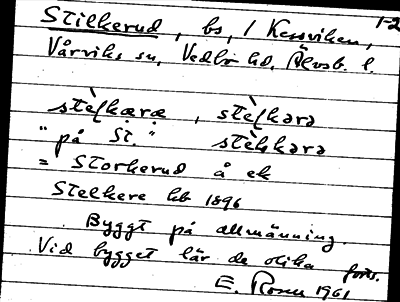 1-2
Stilkerud, bs, / Kesviken,
Vårviks sn, Vedbo hd, Älvsb. l.
stèlkæræ, stèlkərə
"på St." stèlkərə
= Storkerud å ek
Stelkere hb 1896
Byggt på allmänning.
Vid bygget lär de olika forts.
E. Rosen 1961